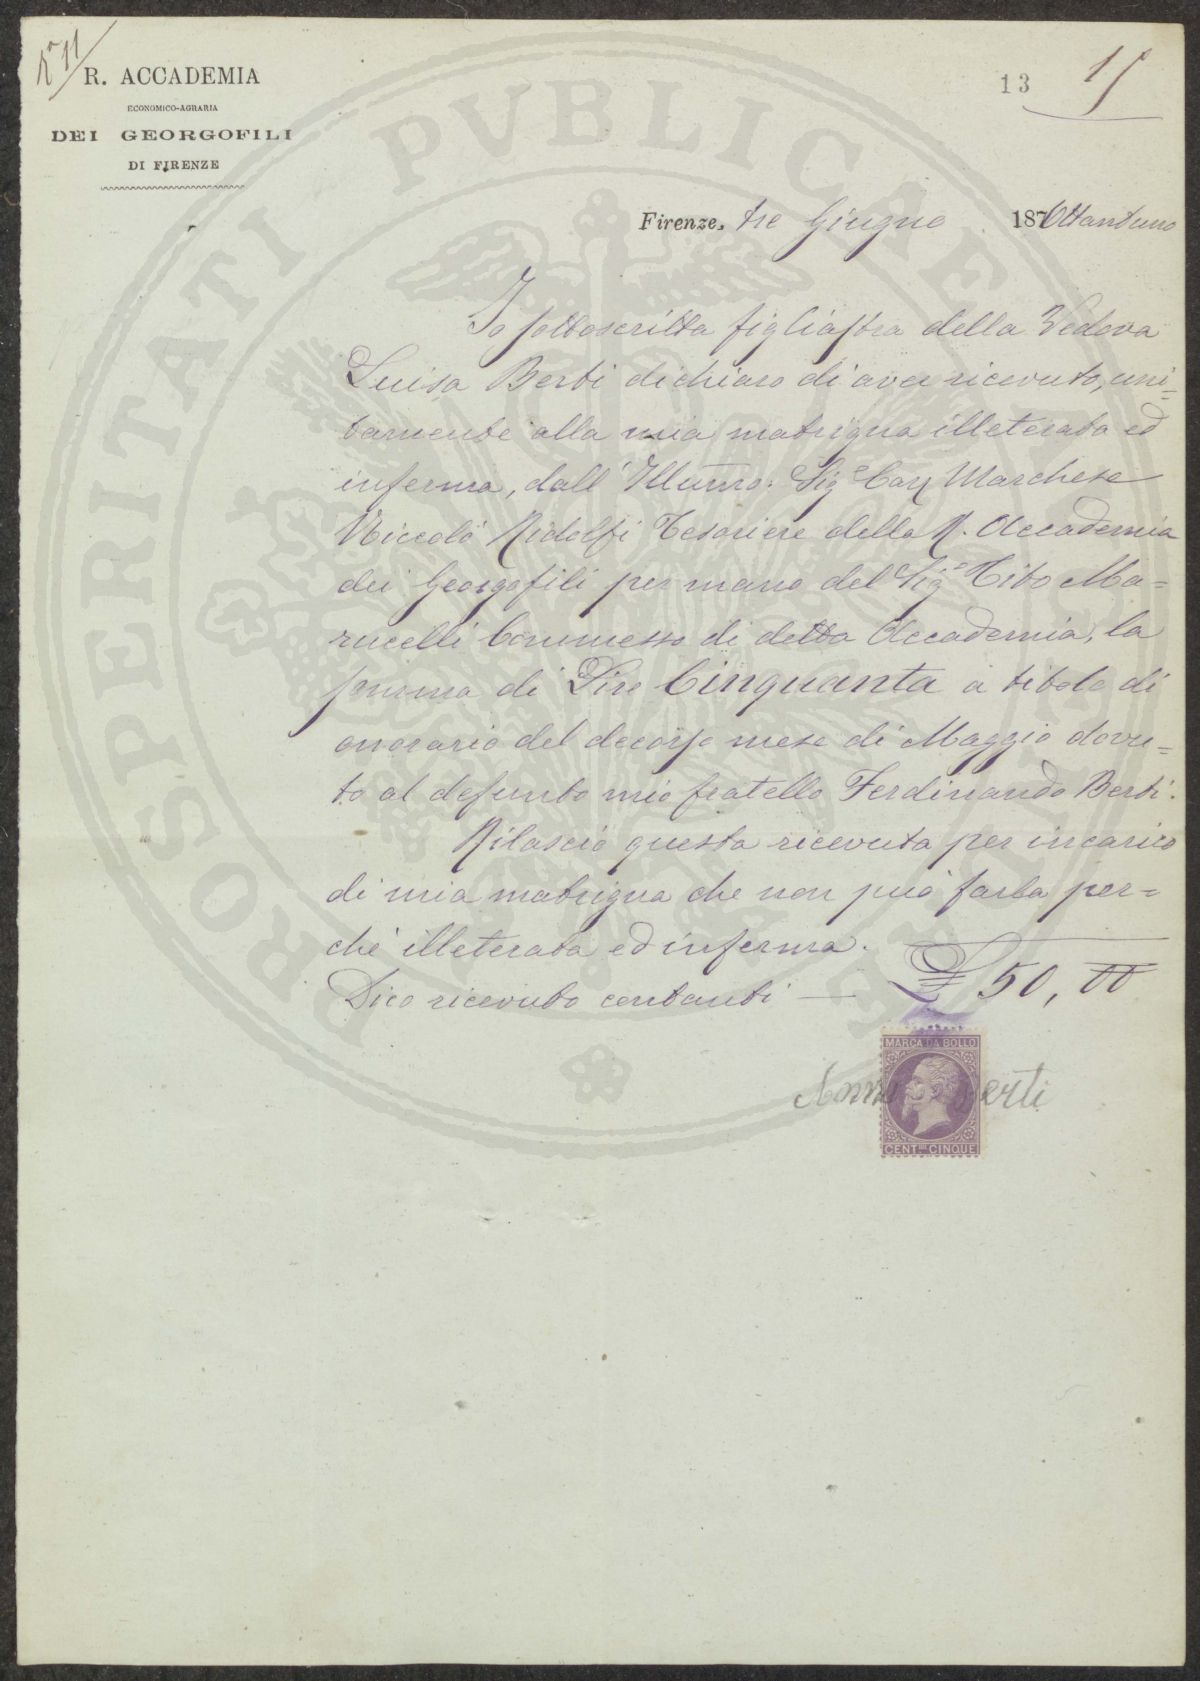 No 11
R. ACCADEMIA
ECONOMICO-AGRARIA
DEI GEORGOFILI
DI FIRENZE
13
15
Firenze, tre Giugno 187 Ottantuno
Io sottoscritta figliastra della Vedova
Luisa Berti dichiaro di aver ricevuto, uni=
tamente alla mia matrigna illeterata ed
inferma, dall' Illumo. Sig Cav Marchese
Niccolò Ridolfi Tesoriere della R. Accademia
dei Georgofili per mano del Sige Tito Ma=
rucelli Commesso di detta Accademia, la
somma di Lire Cinquanta a titolo di
onorario del decorso mese di Maggio dovu=
to al defunto mio fratello Ferdinando Berti.
Rilascio questa ricevuta per incarico
di mia matrigna che non può farla per=
chè illeterata ed inferma.
Dico ricevuto contanti — £ 50, 00
MARCA DA BOLLO
Anna Berti
CENT.MI CINQUE
PROSPERITATI PVBLICAE AVGENDAE